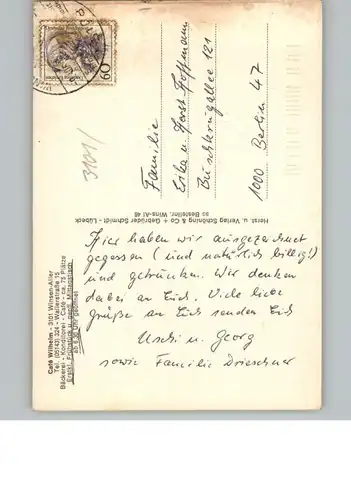 60
Familie
Erika u. Horst Hoffmann
Buschkrugallee 121
1000 Berlin 47
3101/
Café Wilhelm - 3101 Winsen-Aller
Bäckerei - Konditorei - Café ca. 75 Plätze
ab 6.30 Uhr geöffnet
Herst. u. Verlag Schöning & Co + Gebrüder Schmidt - Lübeck
so Bestellnr. Wins-Al 46
Hier haben wir ausgezeichnet
gegessen (und natürlich billig!)
und getrunken. Wir denken
dabei an Euch. Viele liebe
grüße an Euch senden Euch
Uschi u. Georg
sowie Familie Drieschner